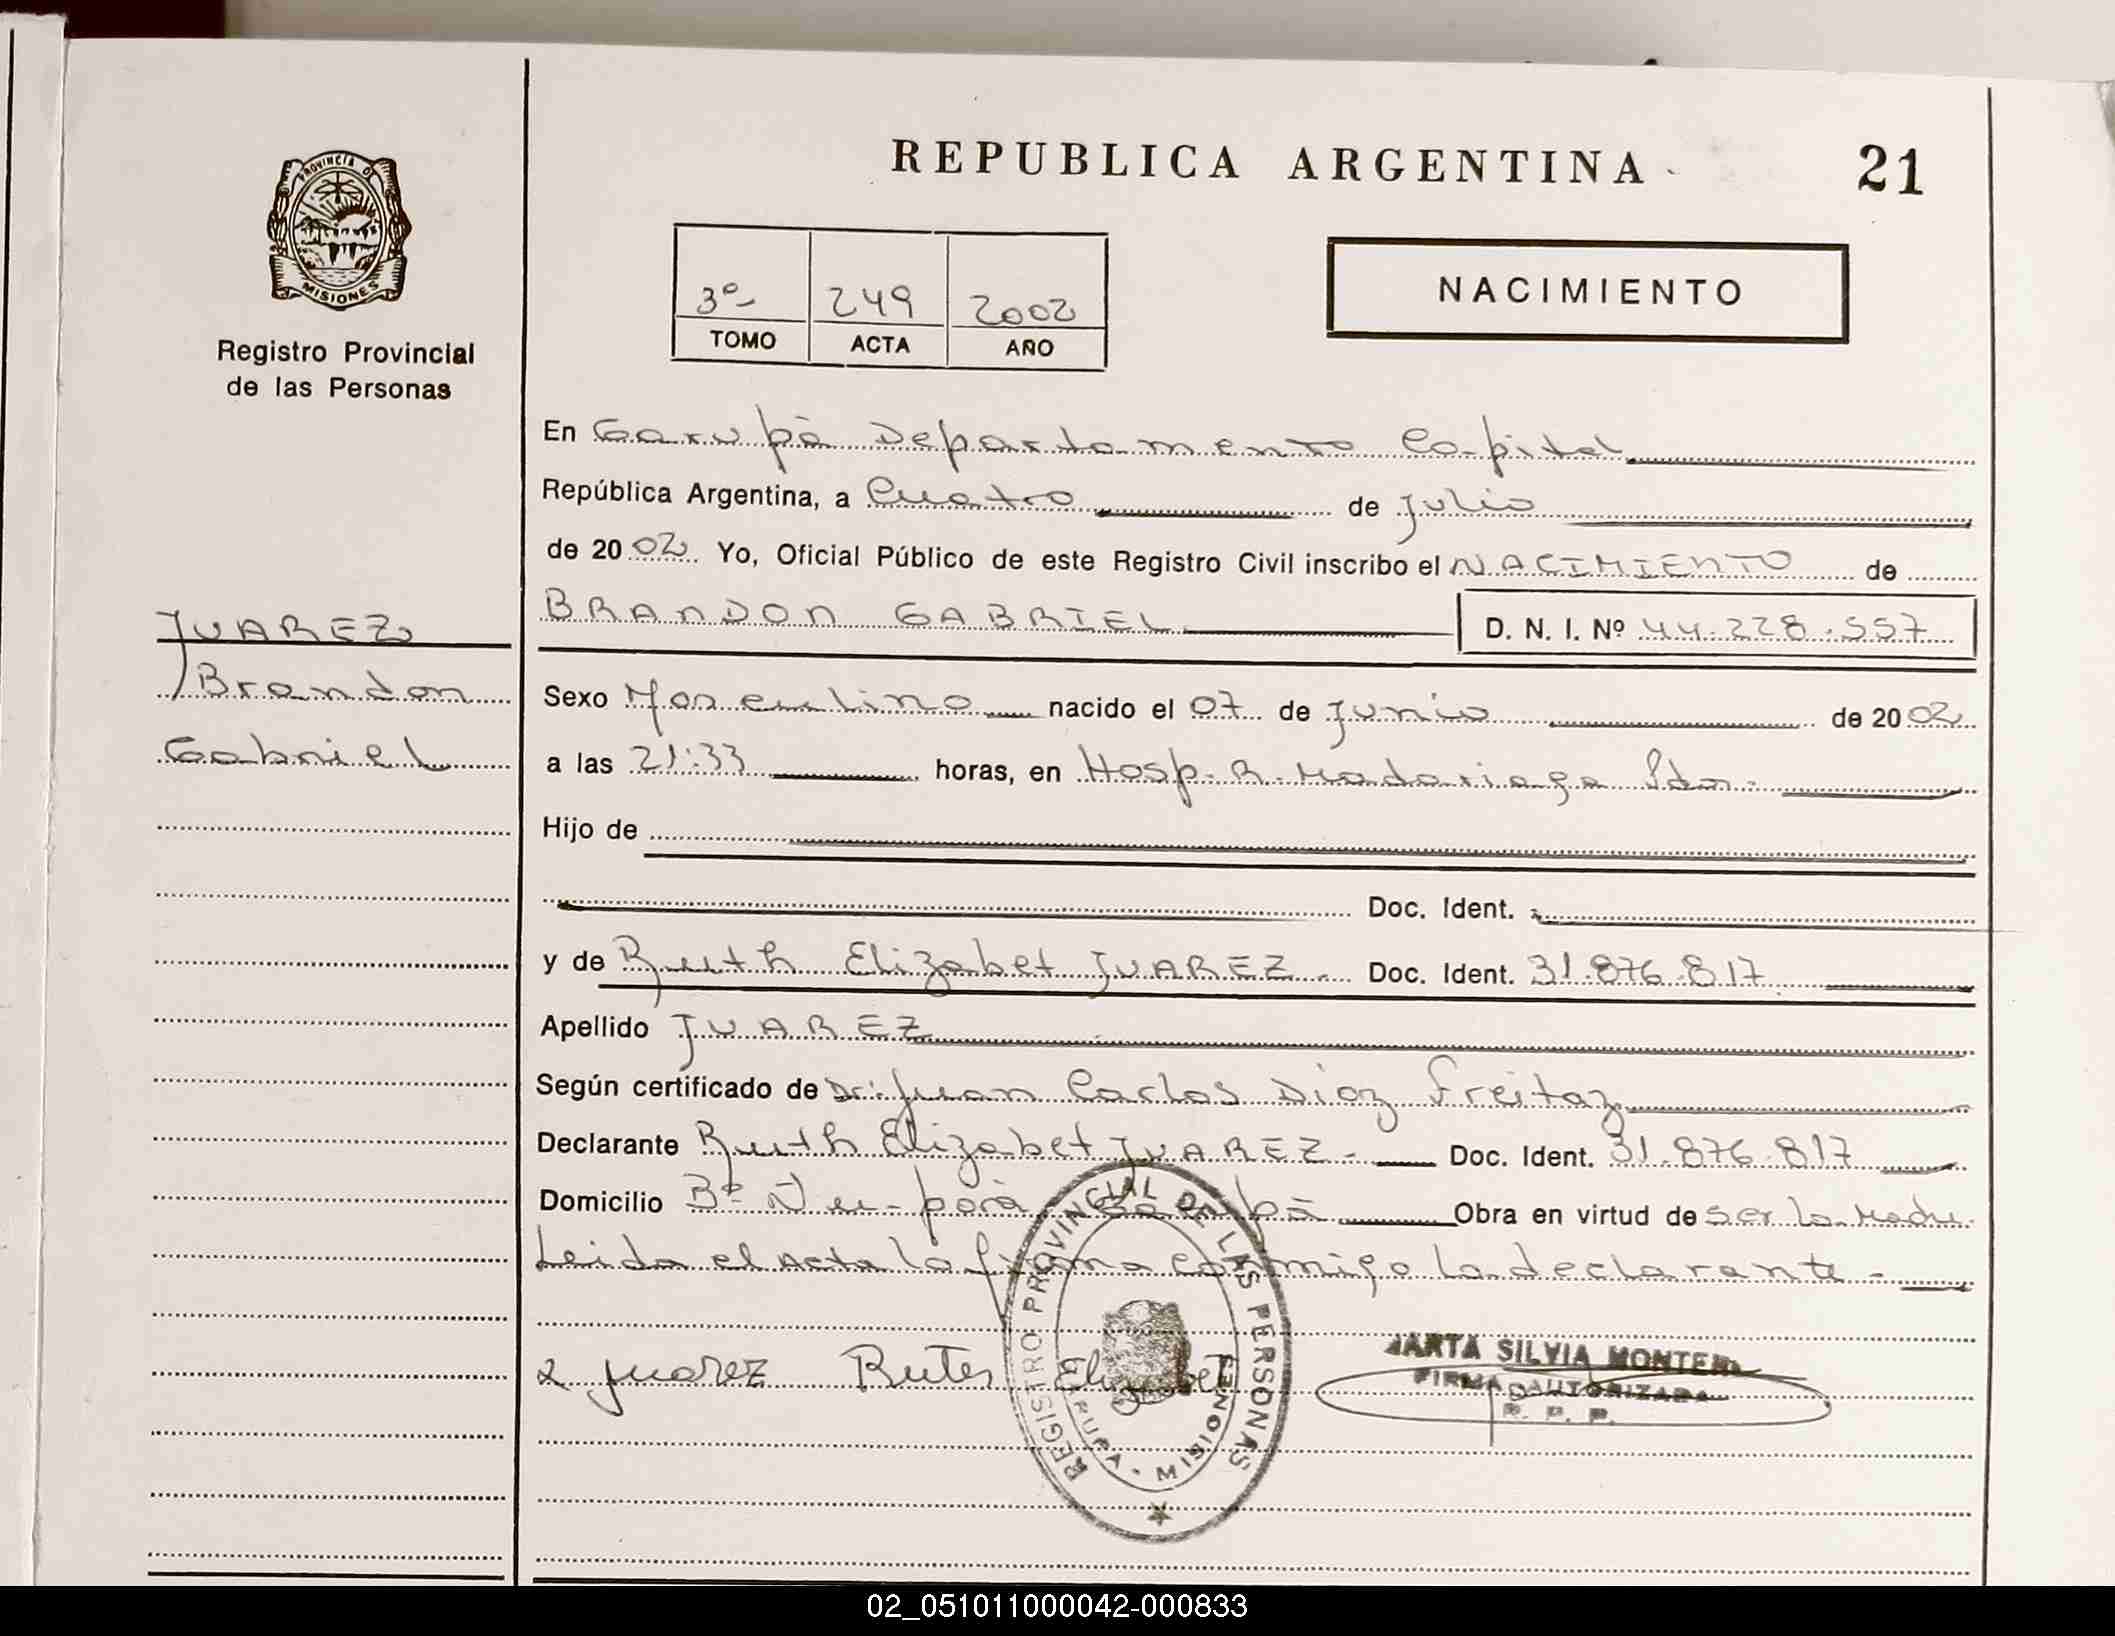 REPUBLICA ARGENTINA
21
PROVINCIA DE
MISIONES
Registro Provincial
de las Personas
3º
249
2002
TOMO
ACTA
AÑO
NACIMIENTO
En Garupà Departamento Capital
República Argentina, a Cuatro de Julio
de 2002 Yo, Oficial Público de este Registro Civil inscribo el NACIMIENTO de
BRANDON GABRIEL D. N. I. Nº 44.228.557
JUAREZ
Brandon
Gabriel
Sexo Masculino nacido el 07 de Junio de 2002
a las 21:33 horas, en Hosp. R. Madariaga Pdas.
Hijo de
Doc. Ident.
y de Ruth Elizabet JUAREZ Doc. Ident. 31.876.817
Apellido JUAREZ
Según certificado de Dr: Juan Carlos Diaz Freitaz
Declarante Ruth Elizabet JUAREZ Doc. Ident. 31.876.817
Domicilio Bº Ñu-porà Garupà Obra en virtud de ser la Madre
Leida el Acta la firma conmigo la declarante
Juarez Elizabet
REGISTRO PROVINCIAL DE LAS PERSONAS
RUPA - MISIONES
MARTA SILVIA
FIRMA AUTORIZADA
R. P. P.
02_051011000042-000833